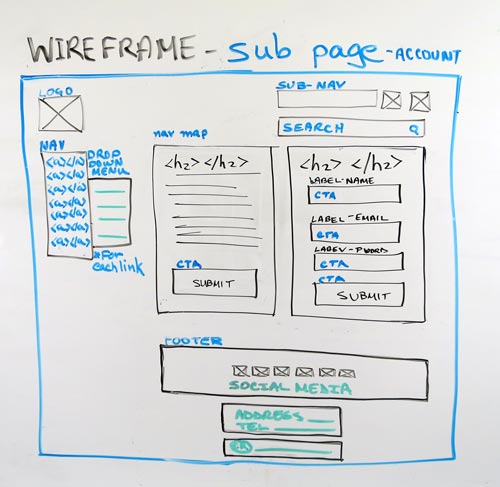 WIREFRAME - sub page - ACCOUNT
LOGO
SUB-NAV
SEARCH
NAV
<a></a>
<a></a>
<a></a>
<a></a>
<a></a>
<a></a>
<a></a>
DROP
DOWN
MENU
*FOR
each link
nav map
<h2> </h2>
CTA
SUBMIT
<h2> </h2>
LABEL-NAME
CTA
LABEL-EMAIL
CTA
LABEL-PWORD
CTA
CTA
SUBMIT
FOOTER
SOCIAL MEDIA
ADDRESS
TEL